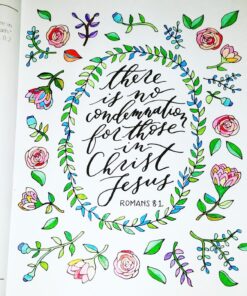 there
is no
condemnation
for those
in
Christ
Jesus
ROMANS 8 1